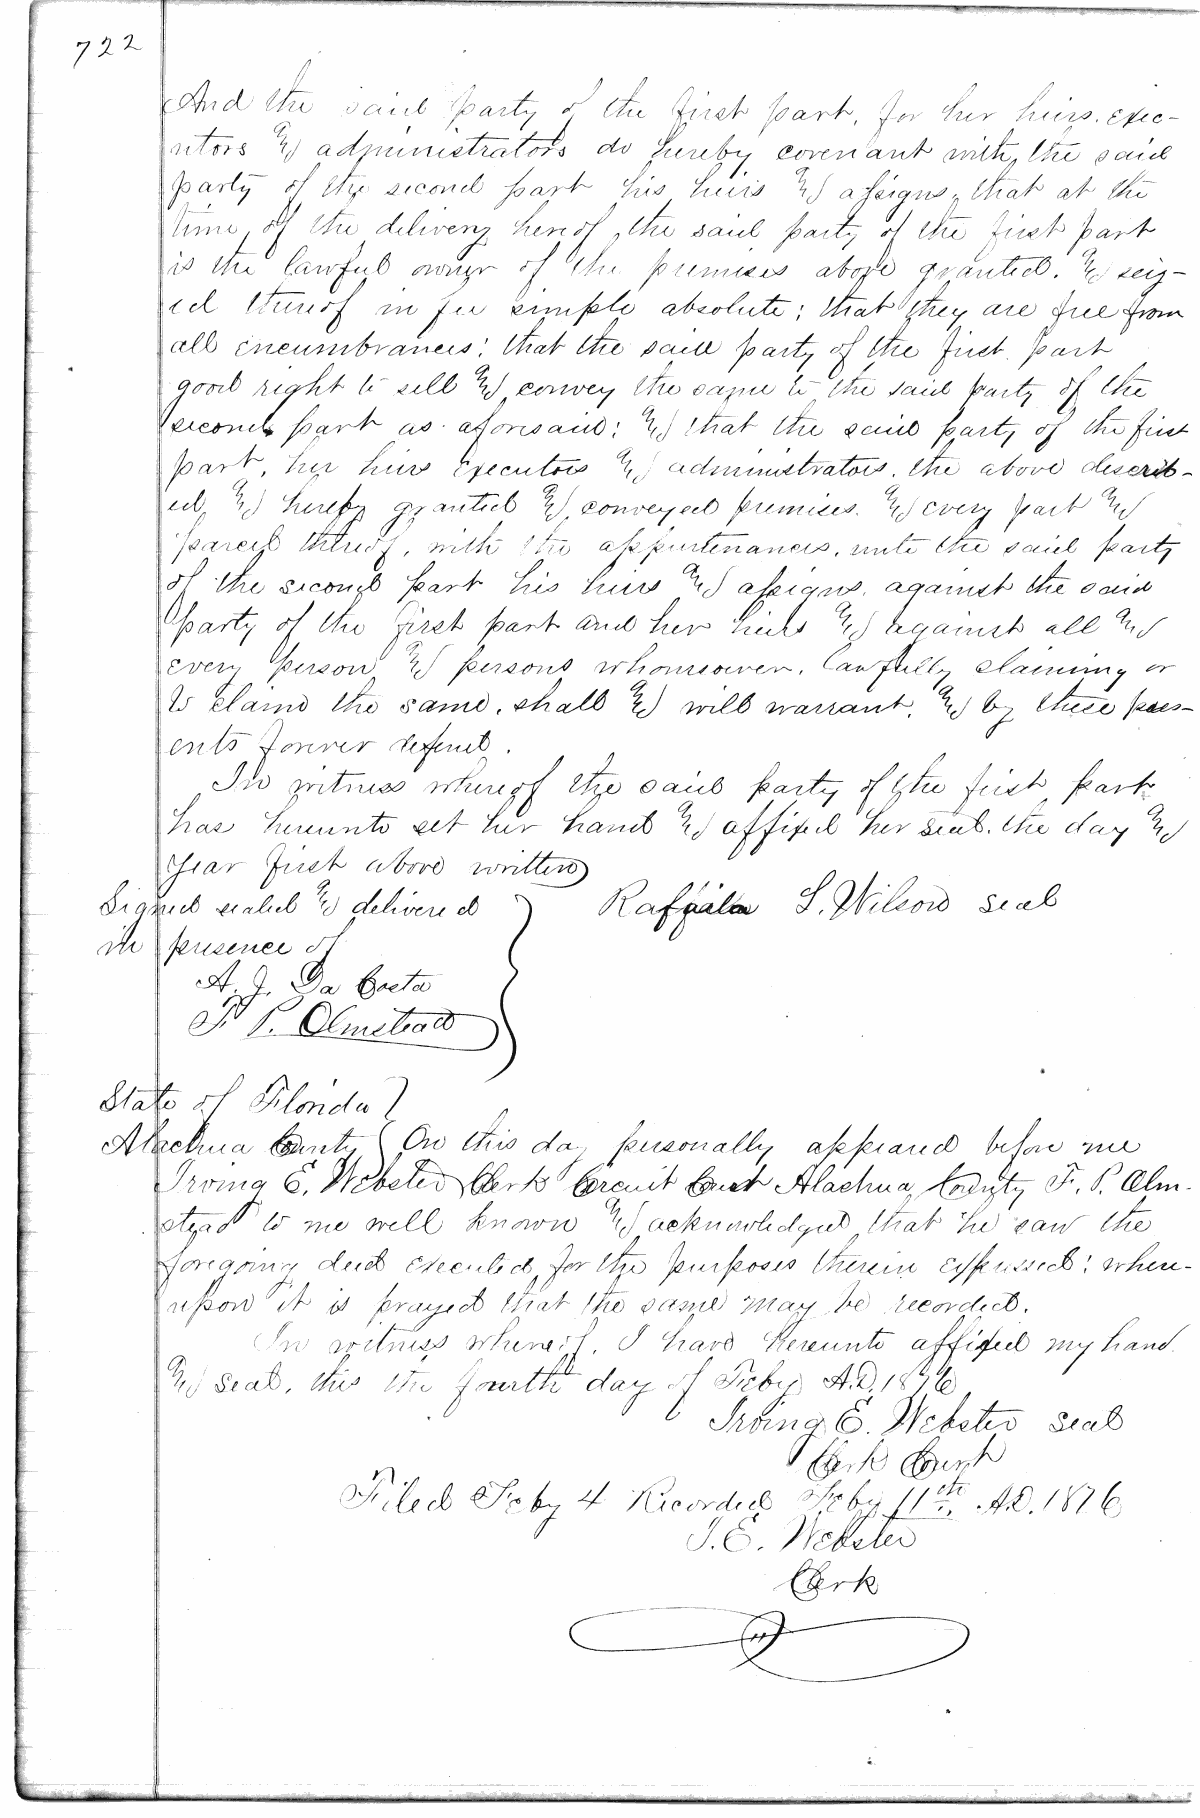 722
And the said party of the first part, for her heirs, exec-
utors & administrators do hereby covenant with, the said
party of the second part his heirs & assigns, that at the
time, of the delivery hereof, the said party of the first part
is the lawful owner of the premises above granted. & seiz-
ed thereof in fee simple absolute; that they are free from
all encumbrances; that the said party of the first part
good right to sell & convey the same to the said party of the
second part as aforesaid; & that the said party of the first
part, her heirs executors & administrators, the above describ-
ed, & hereby granted & conveyed premises. & every part &
parcel thereof, with the appurtenances, unto the said party
of the second part his heirs & assigns, against the said
party of the first part and her heirs & against all &
every person & persons whomsoever, lawfully claiming or
to claim the same, shall & will warrant, & by these pres-
ents forever defend.
In witness whereof the said party of the first part
has hereunto set her hand & affixed her seal, the day &
year first above written
Signed sealed & delivered
in presence of
A. J. Da Costa
F. P. Olmstead
Raffaila S. Wilson seal
State of Florida
Alachua County On this day personally appeared before me
Irving E. Webster Clerk Circuit Court Alachua County F. P. Olm-
stead to me well known & acknowledged that he saw the
foregoing deed executed, for the purposes therein expressed; where-
upon it is prayed that the same may be recorded.
In witness whereof, I have hereunto affixed my hand
& seal, this the fourth day of Feby A.D. 1876
Irving E. Webster seal
Clerk Court
Filed Feby 4 Recorded Feby 11th A.D. 1876
I. E. Webster
Clerk